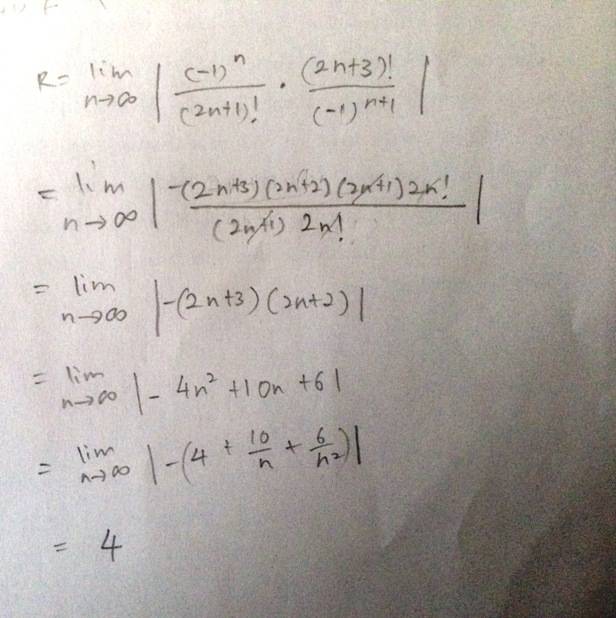 R = lim n→∞ | (-1)^n / (2n+1)! · (2n+3)! / (-1)^{n+1} |
= lim n→∞ | -(2n+3)(2n+2)(2n+1)2n! / (2n+1) 2n! |
= lim n→∞ |-(2n+3)(2n+2)|
= lim n→∞ |- 4n² + 10n + 6|
= lim n→∞ |-(4 + 10/n + 6/n²)|
= 4